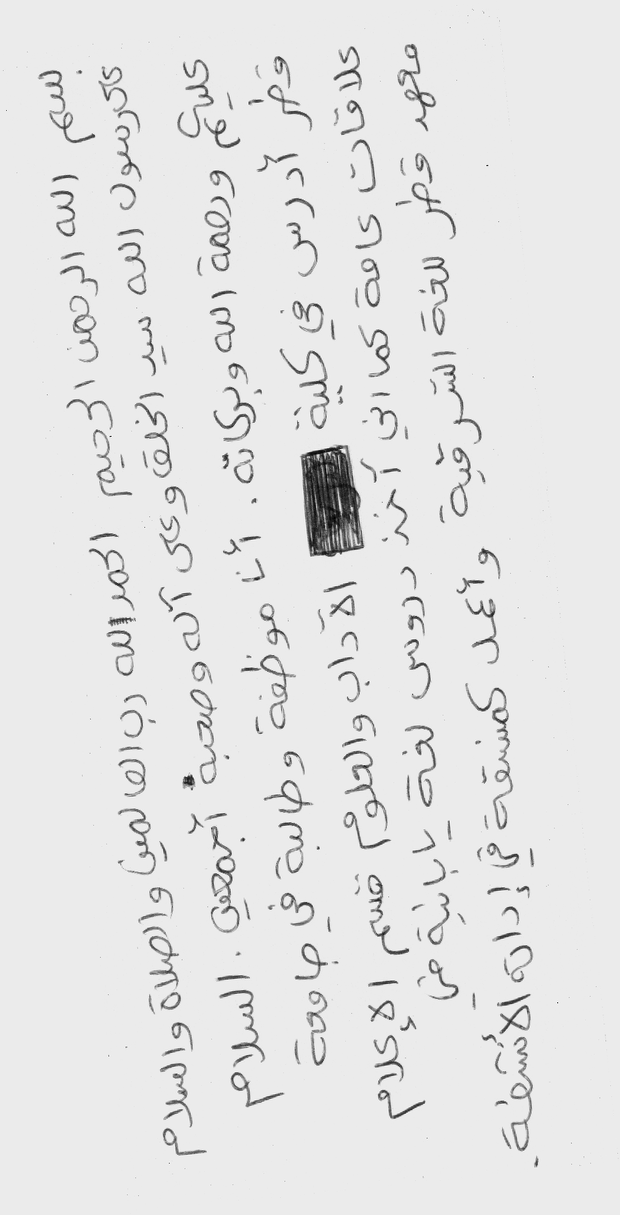 بسم الله الرحمن الرحيم الحمد الله رب العالمين والصلاة والسلام
على رسول الله سيد الخلق وعلى آله وصحبة أجمعين. السلام
عليكم ورحمة الله وبركاته. أنا موظفة وطالبة في جامعة
قطر أدرس في كلية الآداب والعلوم قسم الإعلام
علاقات عامة كما اني آخذ دروس لغة يابانية في
معهد قطر للغة الشرقية وأعمل كمنسقة في إدارة الأنشطة.